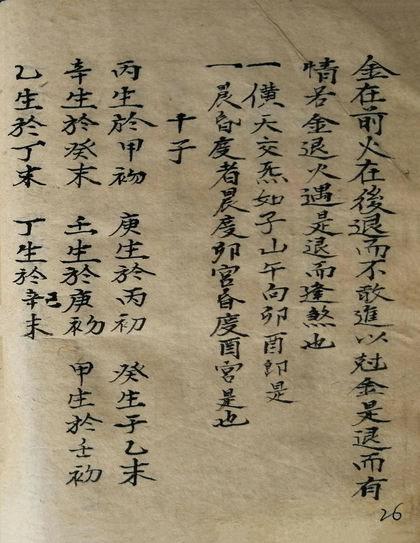 金在前火在後退而不敢進以尅金是退而有
情若金退火遇是退而逢煞也
一 横天交炁如子山午向卯酉即是
一 晨昏度者晨度卯宮昏度酉宮是也
千子
丙生於甲初 庚生於丙初 癸生于乙末
辛生於癸末 壬生於庚初 甲生於壬初
乙生於丁末 丁生於辛己末
26